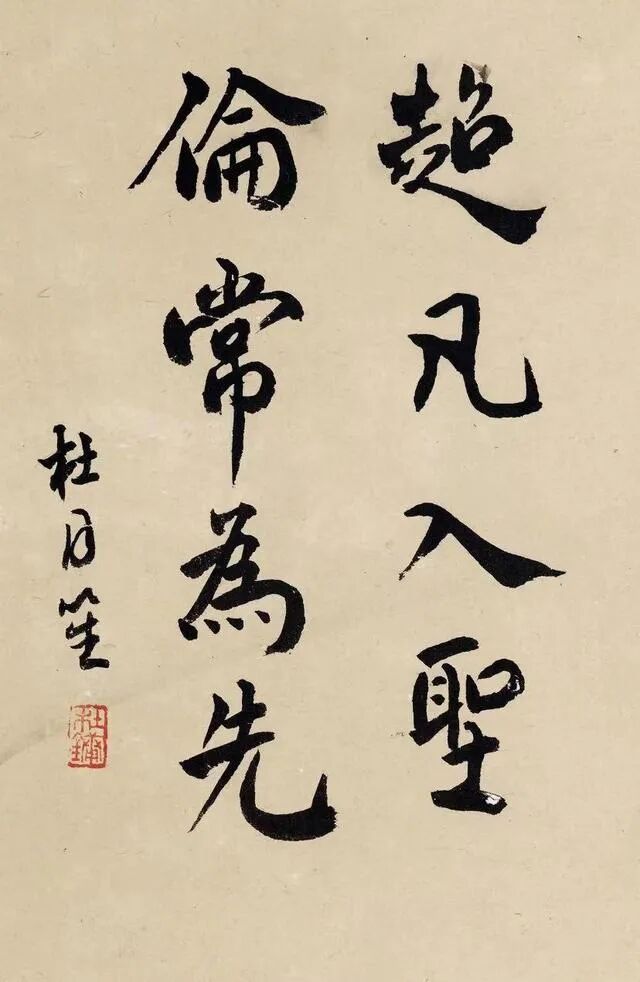 超凡入聖
倫常為先
杜月笙
杜鏞